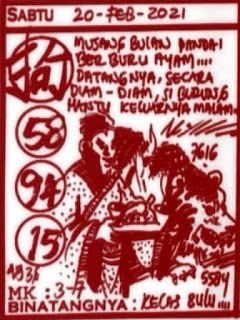 SABTU 20-FEB-2021
MUSANG BULAN PANDAI
BERBURU AYAM....
DATANGNYA, SECARA
DIAM-DIAM, SI BURUNG
HANTU KELUARNYA MALAM..
狗
58
94
15
7616
5584
MK : 3-7
BINATANGNYA : KECAB BULU....